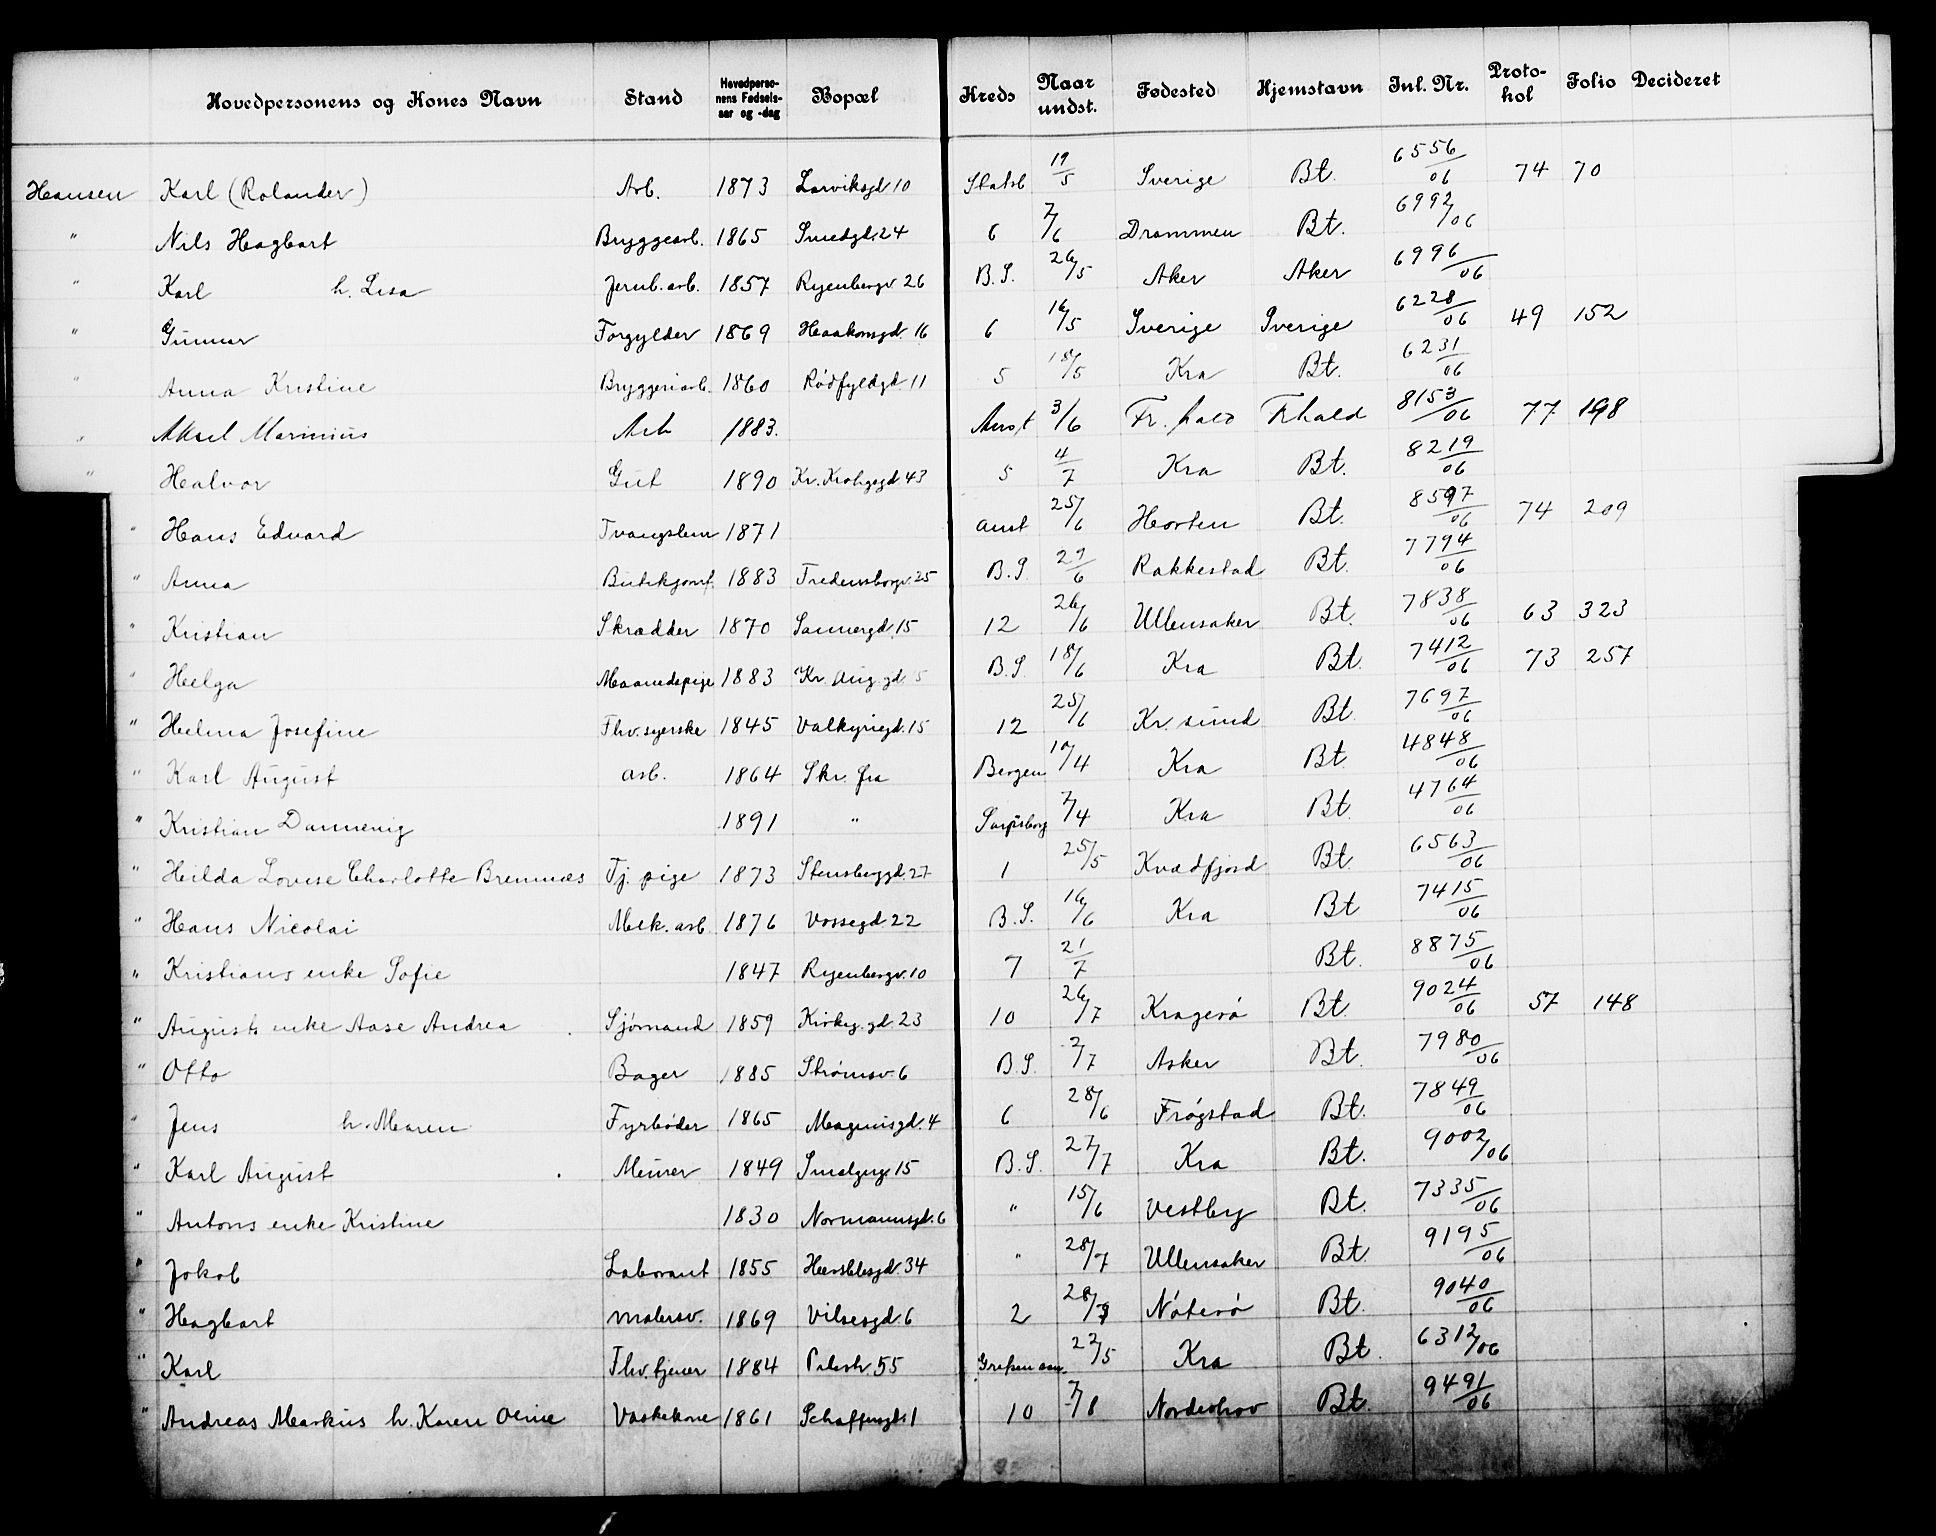 Hovedpersonens og Kones Navn Stand Hovedperso-nens Fødsels-aar og -dag Bopæl Kreds Naar undst. Fødested Hjemstavn Inl. Nr. Proto-kol Folio Decideret
Hansen Karl (Rolander) Arb. 1873 Larviksgd 10 Statsb 19/5 Sverige Bt. 6556/06 74 70
" Nils Hagbart Bryggearb. 1865 Smedgd. 24 6 7/6 Drammen Bt. 6992/06
" Karl h. Lisa Jernb. arb. 1857 Ryenbergv 26 B.S. 26/5 Aker Aker 6996/06
" Gunnar Forgylder 1869 Haakonsgd. 16 6 16/5 Sverige Sverige 6228/06 49 152
" Anna Kristine Bryggeriarb. 1860 Rødfyldgd. 11 5 18/5 Kra Bt. 6231/06
" Aksel Marinius Arb 1883. Anst 3/6 Fr. hald Frhald 8153/06 77 198
" Halvor Gut 1890 Kr. Krohgsgd 43 5 4/7 Kra Bt. 8219/06
" Hans Edvard Tvangslem 1871 anst 25/6 Horten Bt. 8597/06 74 209
" Anna Butikjomf. 1883 Fredensborgv. 25 B.S. 29/6 Rakkestad Bt. 7794/06
" Kristian Skrædder 1870 Sannergd. 15 12 26/6 Ullensaker Bt. 7838/06 63 323
" Helga Maanedspige 1883 Kr. Aug. gd. 5 B.S. 18/6 Kra Bt. 7412/06 73 257
" Helma Josefine Fhv. syerske 1845 Valkyriegd. 15 12 25/6 Kr. sund Bt. 7697/06
" Karl August arb. 1864 Skr. fra Bergen 10/4 Kra Bt 4848/06
" Kristian Dannevig 1891 " Sarpsborg 7/4 Kra Bt. 4764/06
" Hilda Lovise Charlotte Bremnæs Tj. pige 1873 Stensberggd. 27 1 25/5 Kvædfjord Bt 6563/06
" Hans Nicolai Mek. arb 1876 Vossegd. 22 B.S. 16/6 Kra Bt 7415/06
" Kristians enke Sofie 1847 Ryenbergv. 10 7 21/7 Bt. 8875/06
" Augusts enke Aase Andrea Sjømand 1859 Kirkeg. gd. 23 10 26/7 Kragerø Bt. 9024/06 57 148
" Otto Bager 1885 Strømsv. 6 B.S. 2/7 Asker Bt. 7980/06
" Jens h. Maren Fyrbøder 1865 Magnusgd. 4 6 28/6 Frøgstad Bt. 7849/06
" Karl August Murer 1849 Smalgng. 15 B.S. 27/7 Kra Bt. 9002/06
" Antons enke Kristine 1830 Normannsgd. 6 " 15/6 Vestby Bt. 7335/06
" Jakob Laborant 1855 Herslebsgd. 34 " 28/7 Ullensaker Bt. 9195/06
" Hagbart malersv. 1869 Vilsesgd. 6 2 28/7 Nøterø Bt. 9040/06
" Karl Fhv. tjener 1884 Pilestr. 55 Grefsen san. 22/5 Kra Bt. 6312/06
" Andreas Markus h. Karen Oline Vaskekone 1861 Schaffersgd. 1 10 7/8 Norderhov Bt. 9491/06